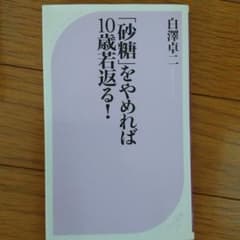 「砂糖」をやめれば
10歳若返る!
白澤卓二